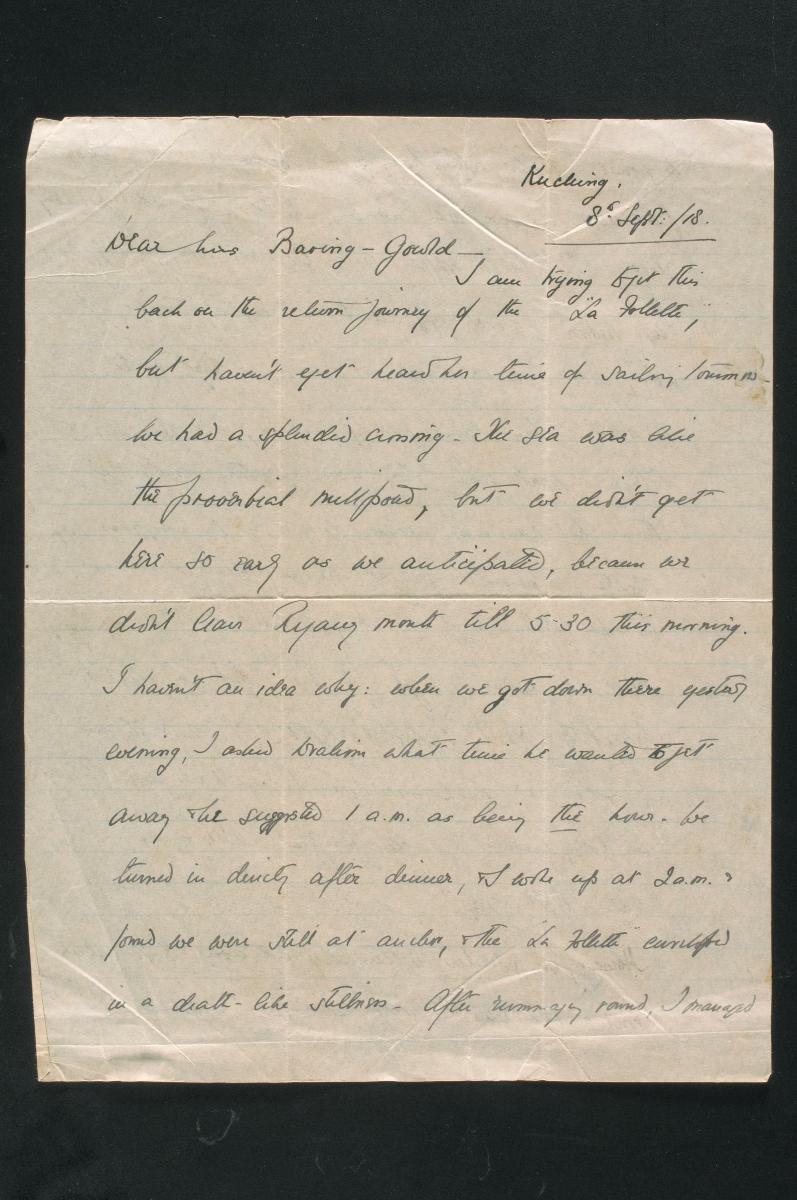 Kuching.
8th Sept: /18.
Dear Mrs Baring-Gould —
I am trying to get this
back on the return journey of the "La Follette",
but haven't yet heard her time of sailing tomorrow
We had a splendid crossing - The sea was like
the proverbial millpond, but we didn't get
here so early as we anticipated, because we
didn't leave Ryang mouth till 5-30 this morning.
I haven't an idea why: when we got down there yesterday
evening, I asked Ibrahim what time he wanted to get
away & he suggested 1 a.m. as being the hour. We
turned in directly after dinner, & I woke up at 2 a.m. &
found we were still at anchor, & the "La Follette" enveloped
in a death-like stillness - After rummaging round, I managed